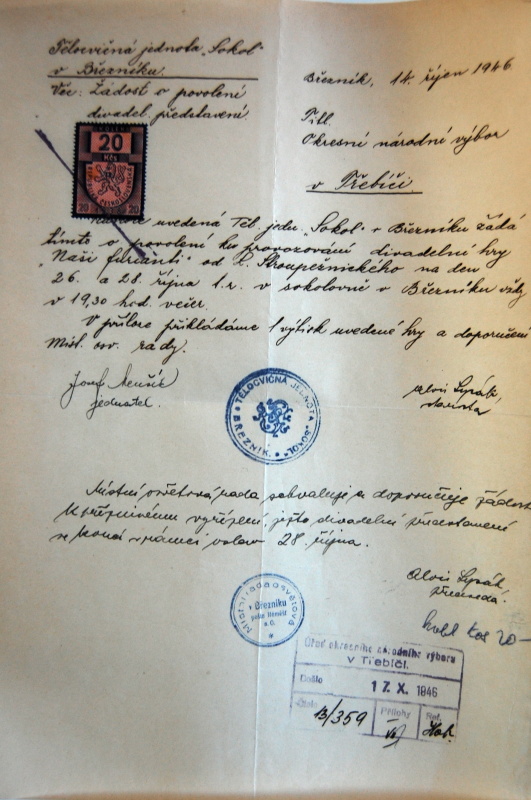 Tělocvičná jednota „Sokol“
v Březníku.
Věc: Žádost o povolení
divadel. představení.
Březník, 14. říjen 1946.
Titl.
Okresní národní výbor
v Třebíči.
KOLEK
20
Kčs
REPUBLIKA ČESKOSLOVENSKÁ
20 20
uvedená Těl. jedn. „Sokol“ v Březníku žádá
tímto o povolení ku provozování divadelní hry
"Naši furianti" od L. Stroupežnického na den
26. a 28. října t.r. v sokolovně v Březníku vždy
v 19,30 hod. večer.
V příloze přikládáme 1 výtisk uvedené hry a doporučení
Míst. osv. rady.
Josef
jednatel.
TĚLOCVIČNÁ JEDNOTA
„SOKOL“
BŘEZNÍK.
Alois Lysák,
starosta
Místní osvětová rada schvaluje a doporučuje žádost
k příznivému vyřízení, ježto divadelní představení
se koná v rámci oslav 28. října.
Alois Lysák
předseda.
Místní rada osvětová
v Březníku
kol Kčs 20-
Úřad okresního národního výboru
v Třebíči.
Došlo 17. X. 1946
Číslo 13/359 Přílohy Ref.